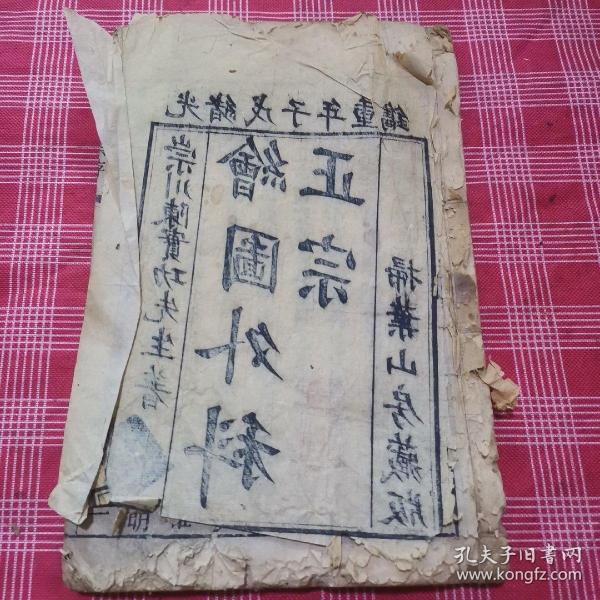 光緒戊子年重鐫
崇川陳實功先生著
繪圖外科
正宗
掃葉山房藏版
明
孔夫子旧书网
www.kongfz.com